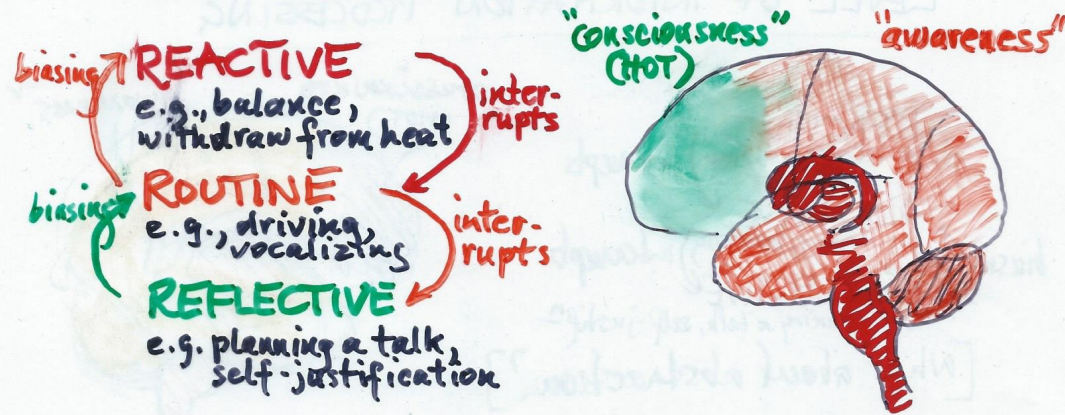 biasing
REACTIVE
e.g., balance,
withdraw from heat
inter-
rupts
biasing
ROUTINE
e.g., driving,
vocalizing
inter-
rupts
REFLECTIVE
e.g. planning a talk,
self-justification
"consciousness"
(HOT)
"awareness"